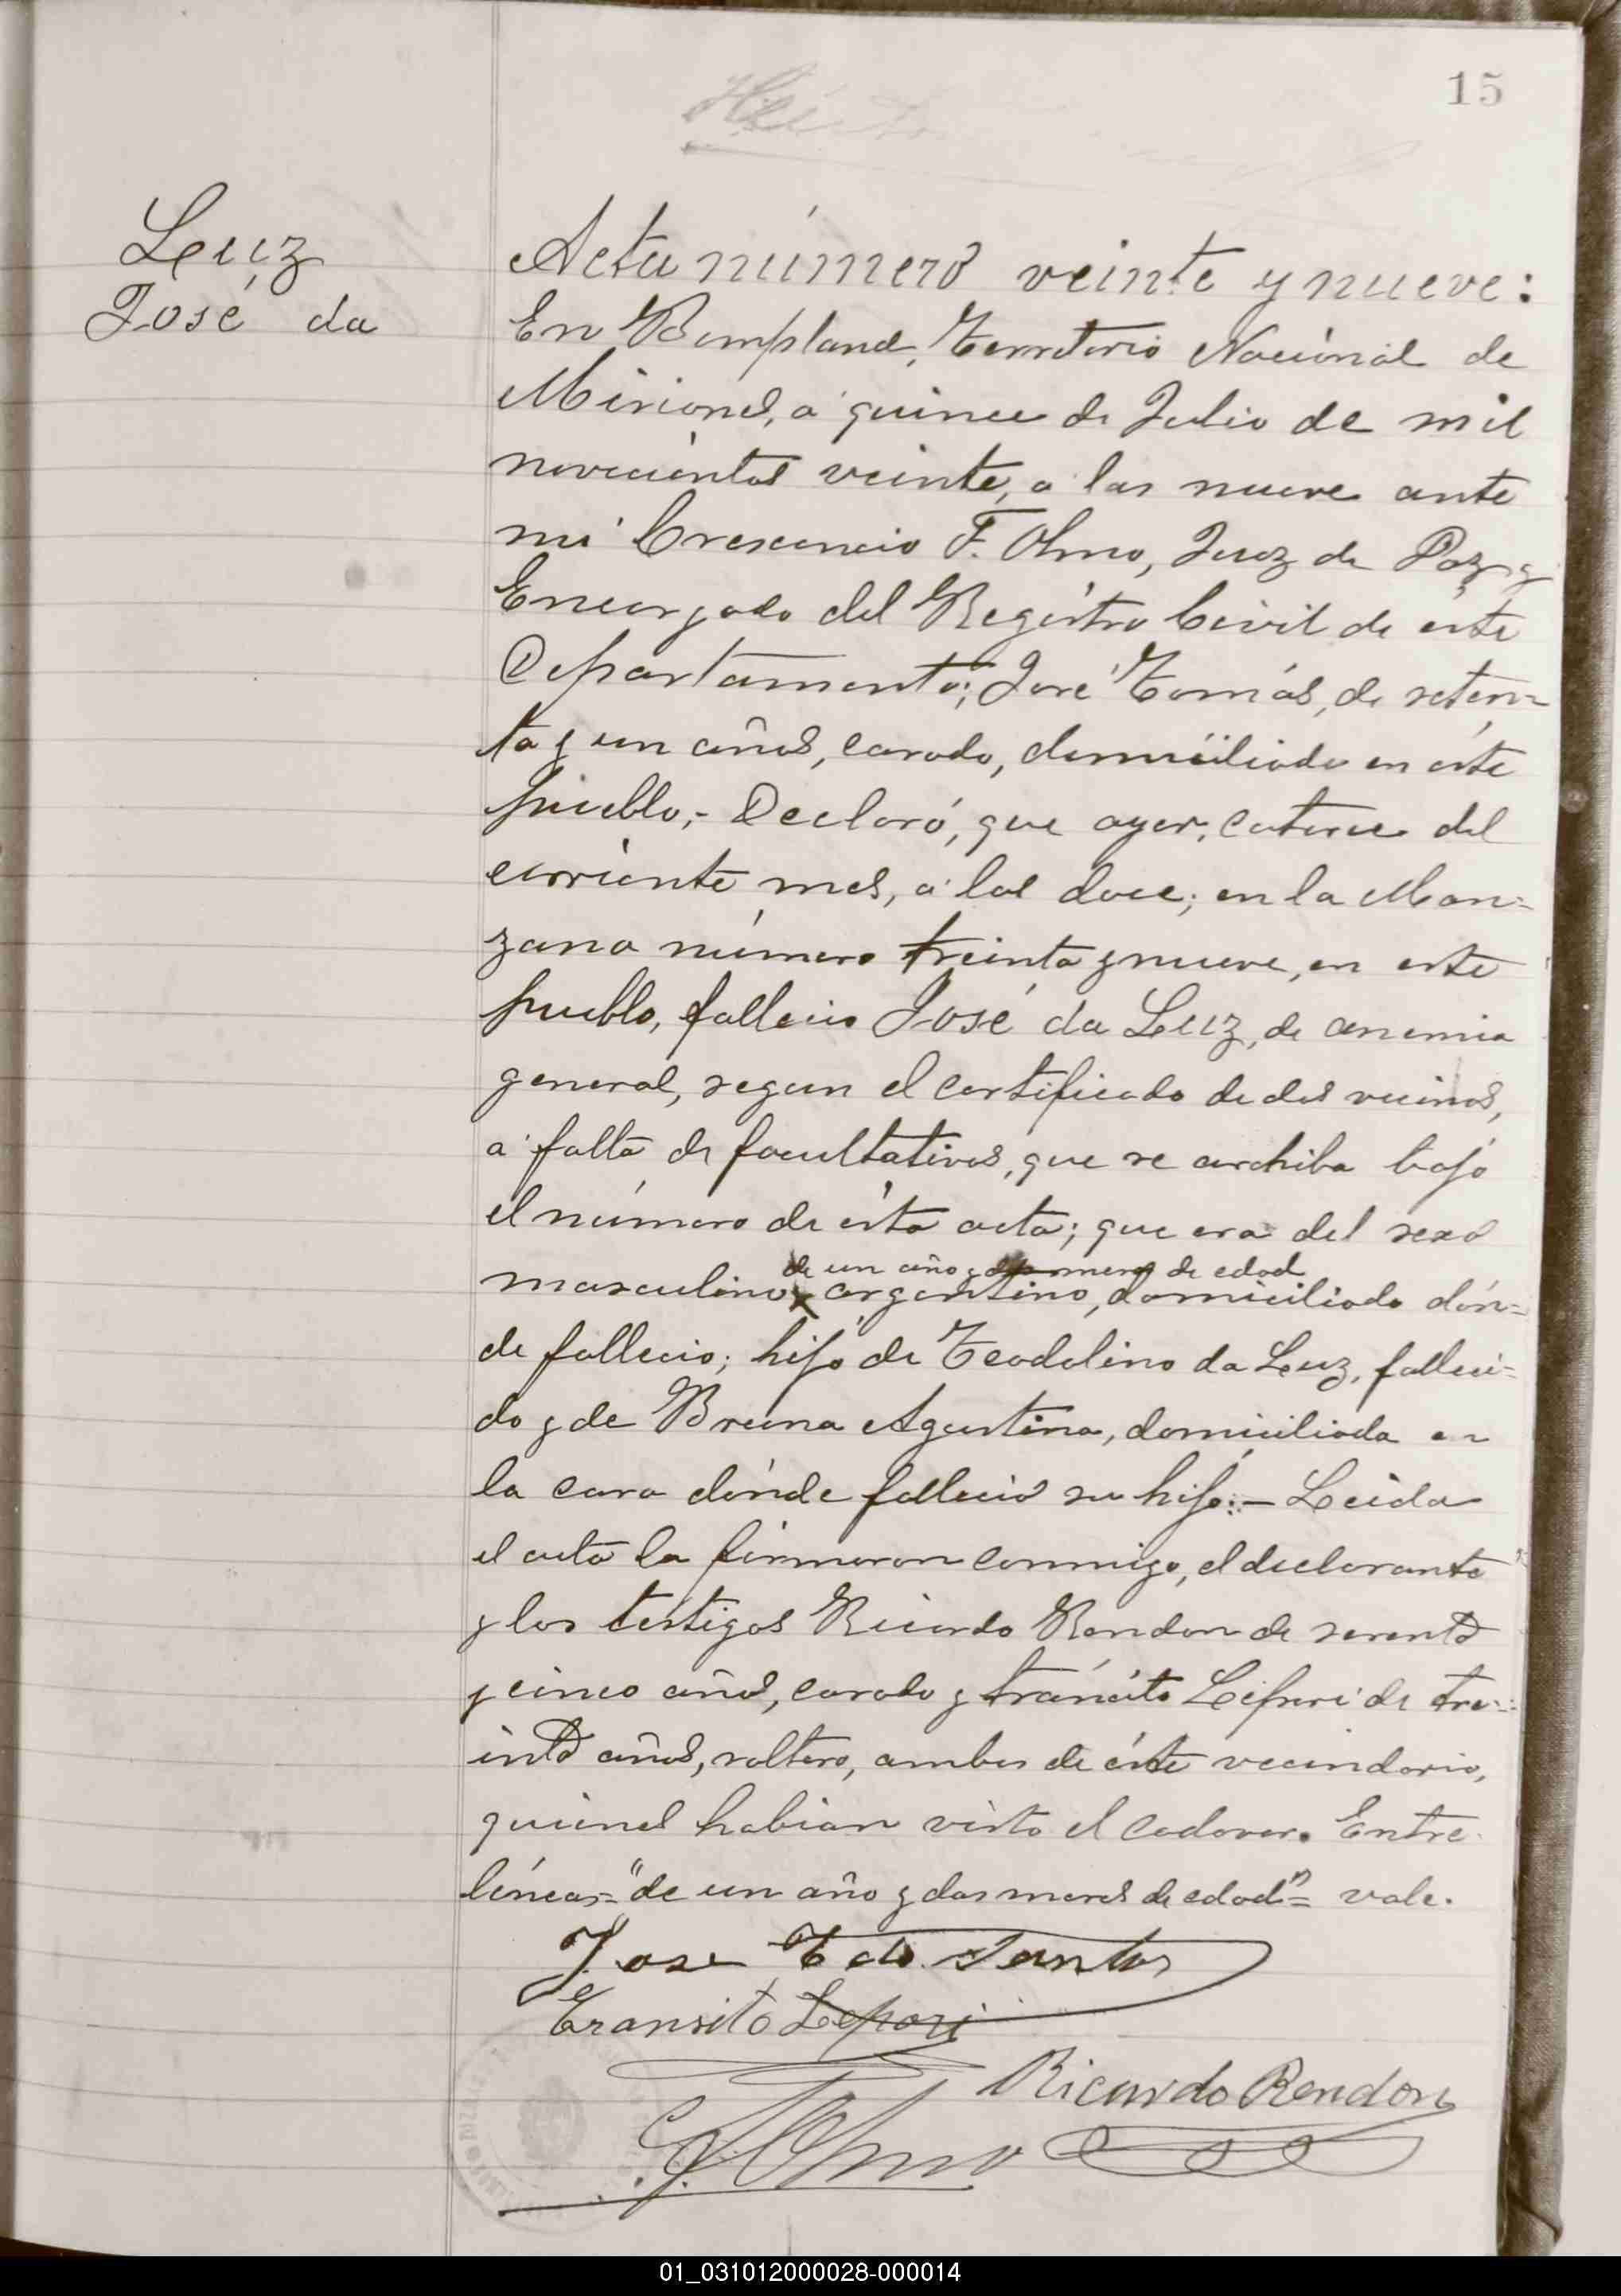 15
Luz
José da
Acta número veinte y nueve:
En Bompland, Territorio Nacional de
Misiones, a quince de Julio de mil
novecientos veinte, a las nueve ante
mi Crescencio F. Olmo, Juez de Paz y
Encargado del Registro Civil de éste
Departamento; José Tomás, de seten=
ta y un años, casado, domiciliado en éste
pueblo,- Declaró, que ayer, catorce del
corriente mes, a las doce; en la Man=
zana número treinta y nueve, en este
pueblo, fallecio José da Luz, de anemia
general, segun el certificado de dos vecinos,
a falta de facultativos, que se archiba bajo
el número de ésta acta; que era del sexo
de un año y dos meses de edad
masculino, argentino, domiciliado dón=
de fallecio; hijo de Teodolino da Luz, falleci=
do y de Bruna Agustina, domiciliada en
la casa dónde falleció su hijo:- Leida
el acta la firmaron conmigo, el declarante
y los testigos Ricardo Rendon de sesenta
y cinco años, casado y tránsito Lepori de tre=
inta años, soltero, ambos de éste vecindario,
quienes habian visto el cadaver. Entre
líneas="de un año y dos meses de edad"= vale.
Jose T do Santos
Transito Lepori
Ricardo Rendon
C. F. Olmo
01_031012000028-000014